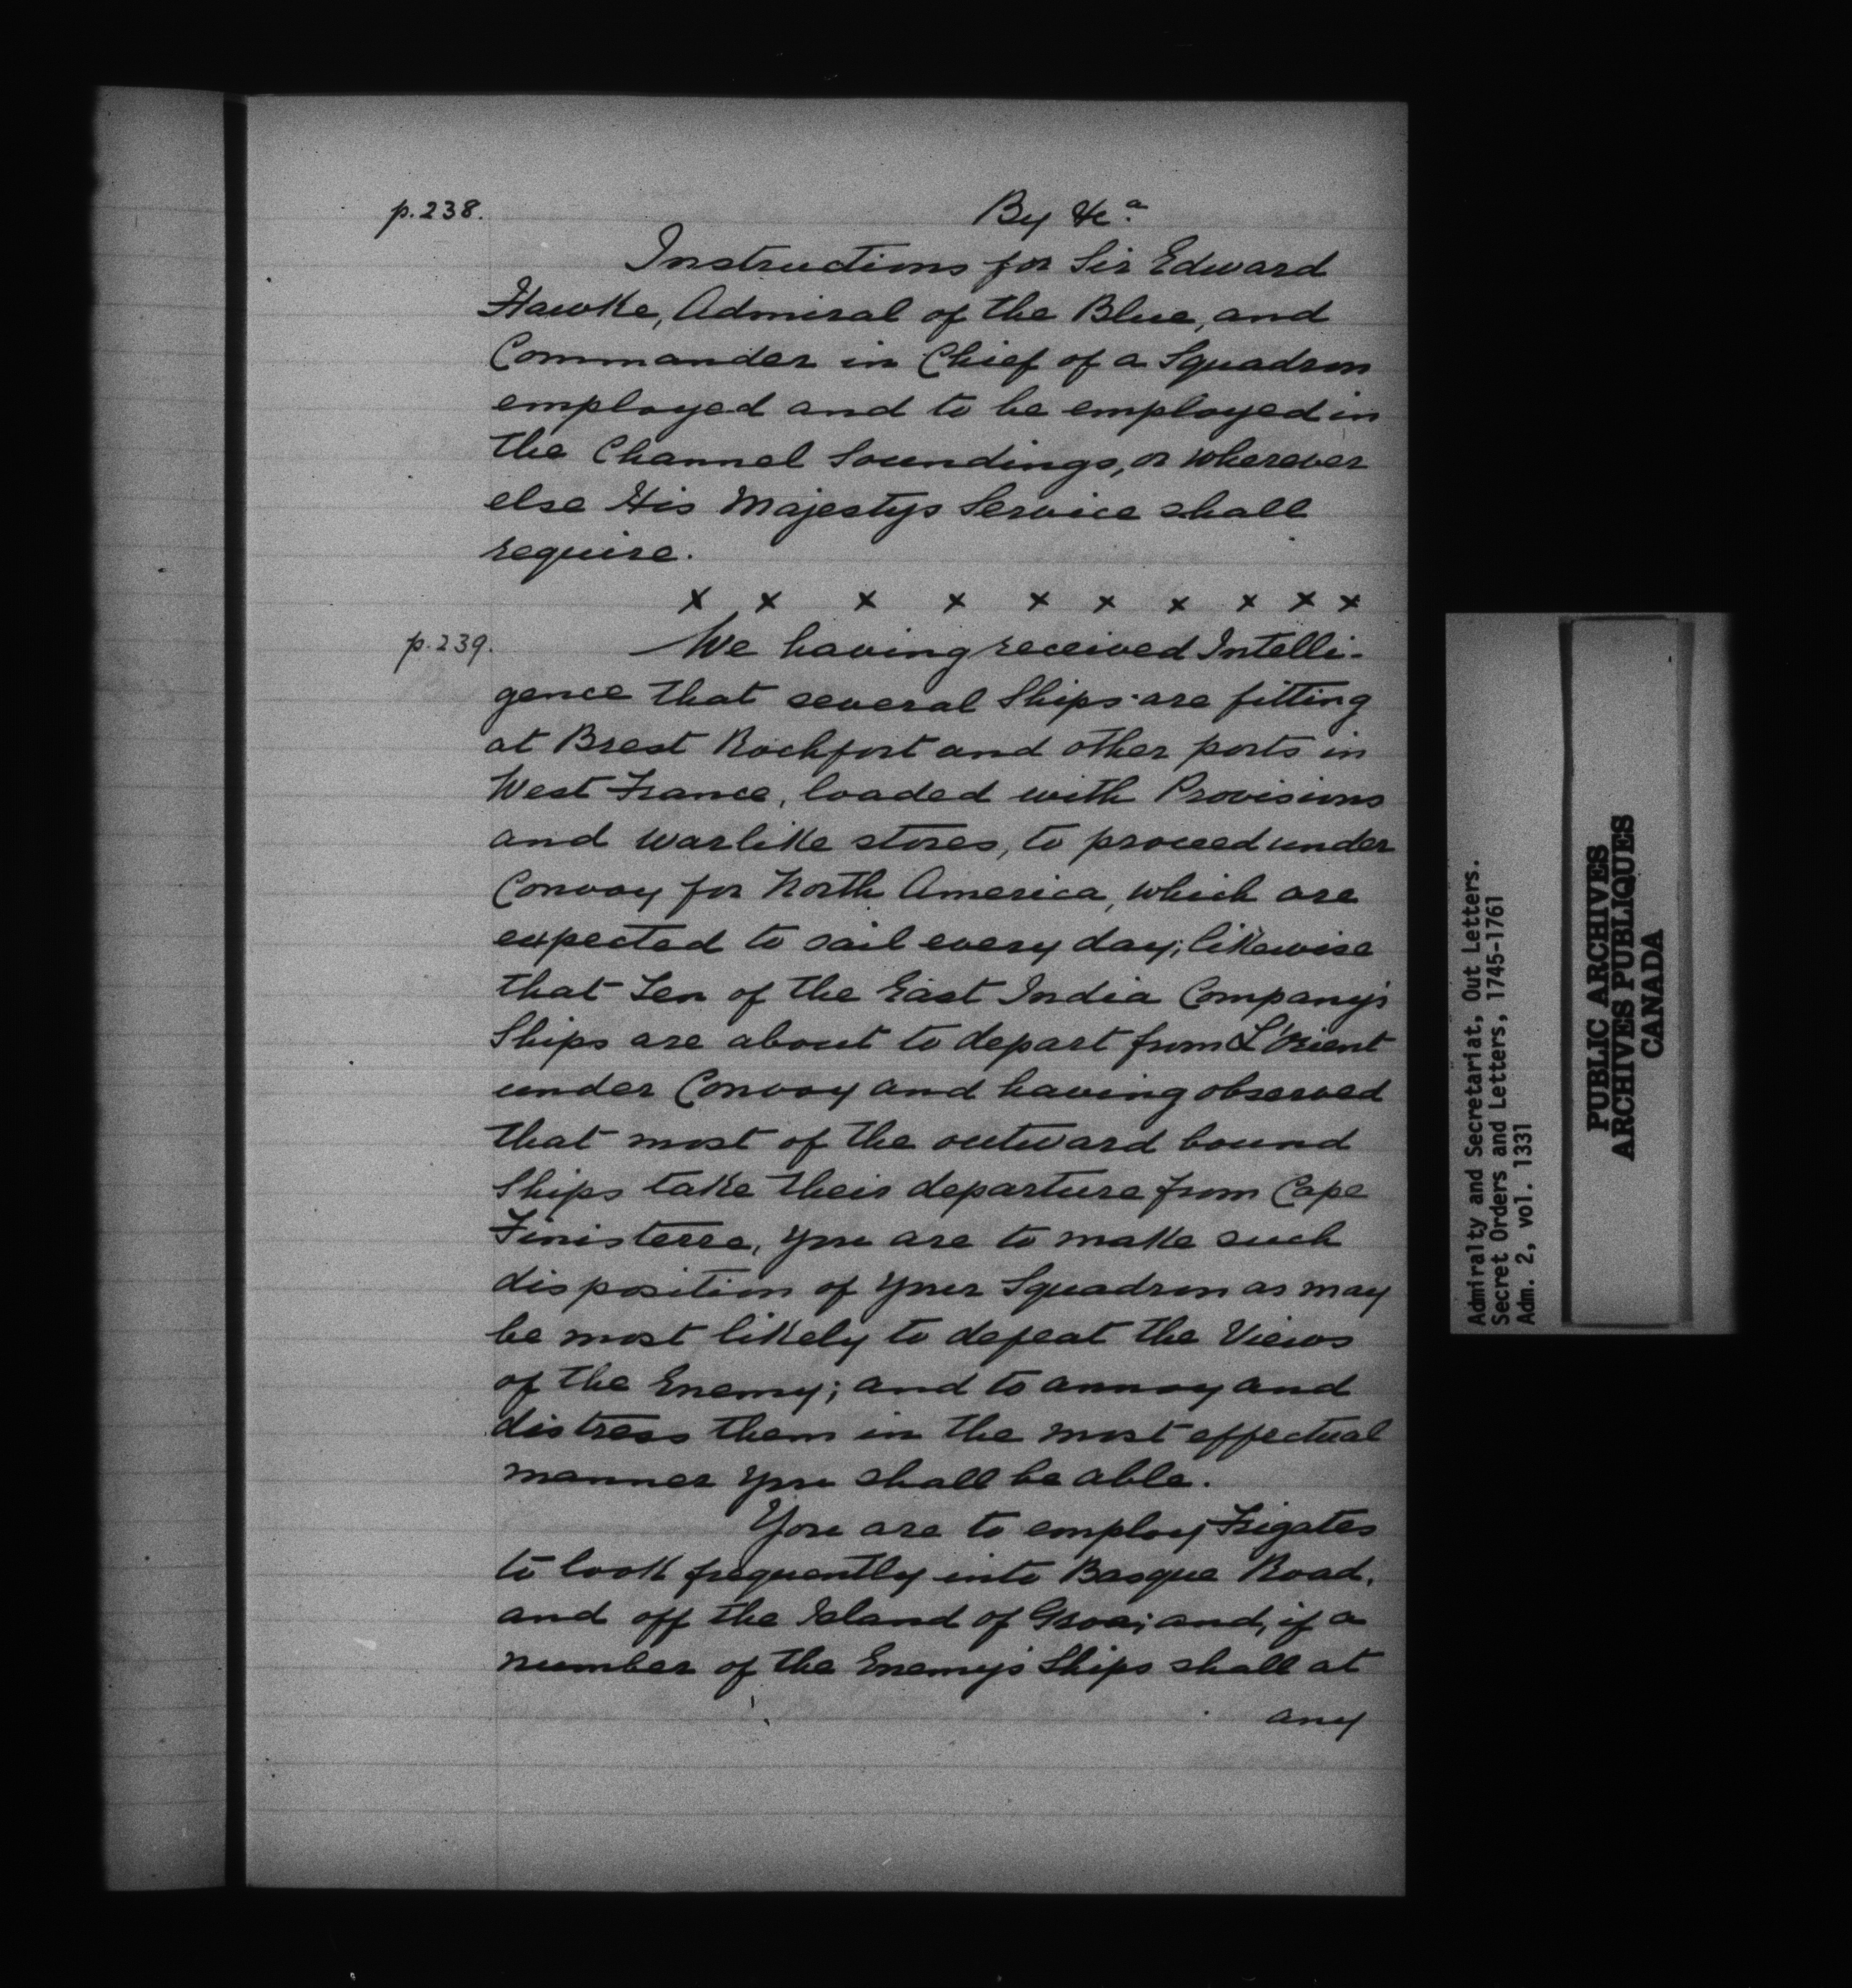 p.238.
By &c.ª
Instructions for Sir Edward
Hawke, Admiral of the Blue, and
Commander in Chief of a Squadron
employed and to be employed in
the Channel Soundings, or wherever
else His Majestys Service shall
require.
x x x x x x x x x x
p.239.
We having received Intelli-
gence that several Ships are fitting
at Brest Rochfort and other ports in
West France, loaded with Provisions
and warlike stores, to proceed under
Convoy for North America, which are
expected to sail every day; likewise
that Ten of the East India Company's
Ships are about to depart from L'Orient
under Convoy and having observed
that most of the outward bound
Ships take their departure from Cape
Finisterre, you are to make such
disposition of your Squadron as may
be most likely to defeat the Views
of the Enemy; and to annoy and
distress them in the most effectual
manner you shall be able.
You are to employ Frigates
to look frequently into Basque Road,
and off the Island of Groa; and, if a
number of the Enemy's Ships shall at
any
Admiralty and Secretariat, Out Letters.
Secret Orders and Letters, 1745-1761
Adm. 2, vol. 1331
PUBLIC ARCHIVES
ARCHIVES PUBLIQUES
CANADA